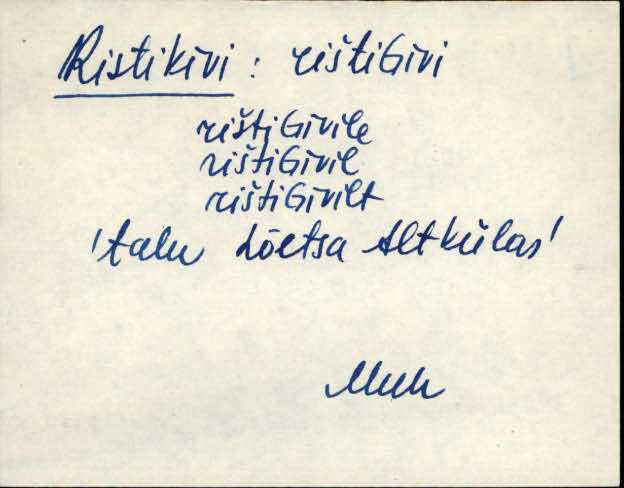 Ristikivi : rištiGivi
rištiGivile
rištiGivil
rištiGivilt
'talu Lõetsa Altkülas'
Muh